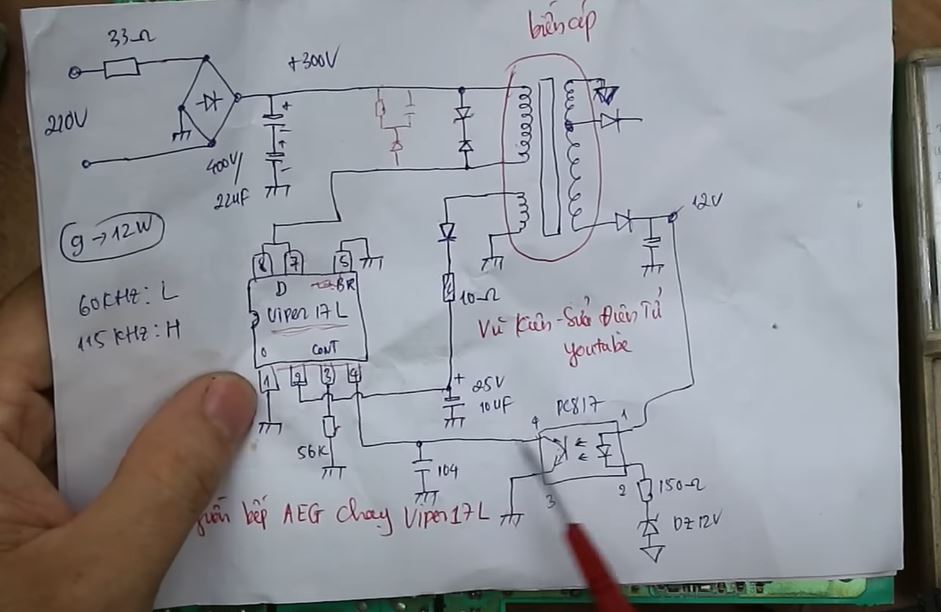 biến áp
33Ω
+300V
220V
400V/
22uF
12V
9→12W
8
7
5
D
BR
10Ω
60KHz: L
115KHz: H
Viper 17L
Vũ Kiên - Sửa Điện Tử
youtube
CONT
1
2
3
4
+
25V
10uF
PC817
4
1
56K
104
3
2
150Ω
DZ 12V
bếp AEG chạy Viper 17L